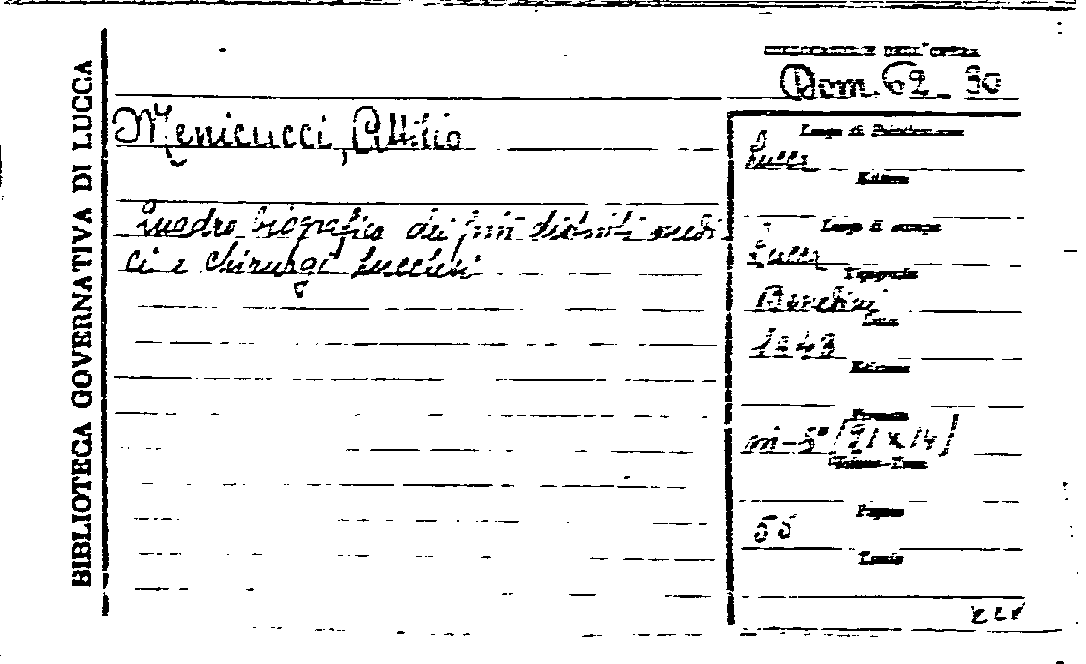 BIBLIOTECA GOVERNATIVA DI LUCCA
DELL'OPERA
Dom. 62 - 30
Menicucci, Attilio
Quadro biografico dei più distinti medi
ci e chirurgi Lucchesi
Luogo di Pubblicazione
Lucca
Editore
Luogo di stampa
Lucca
Tipografia
Data
1843
Edizione
Formato
in-8° [21 x 14]
Volume-Tomo
Pagine
55
Tavole